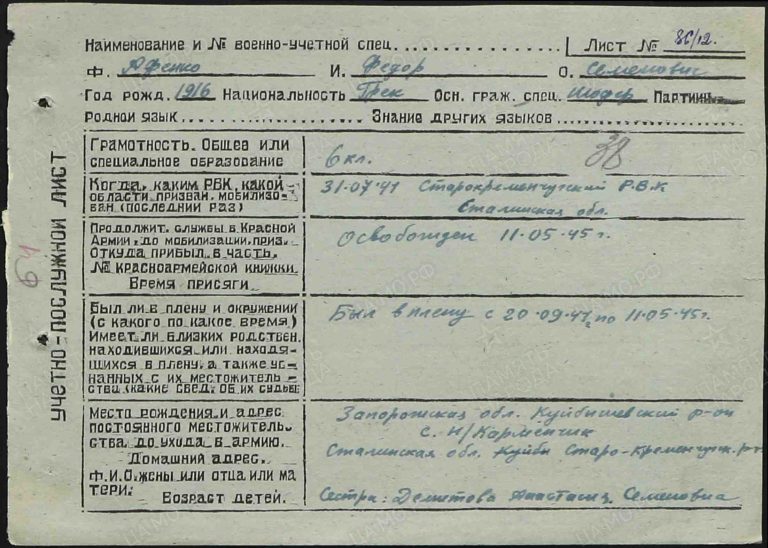 Наименование и № военно-учетной спец. Лист № 86/12.
Ф. Афенко И. Федор О. Семенович
Год рожд. 1916 Национальность Грек Осн. граж. спец. Шофер Партийн
Родной язык Знание других языков
УЧЕТНО-ПОСЛУЖНОЙ ЛИСТ
64
Грамотность. Общее или
специальное образование
6 кл.
38
Когда, каким РВК, какой
области призван, мобилизо-
ван (последний раз)
31.07.41 Старокременчугский Р.В.К
Сталинская обл.
Продолжит. службы в Красной
Армии, до мобилизации, приз.
Откуда прибыл в часть.
№ красноармейской книжки
Время присяги
Освобожден 11.05.45 г.
Был ли в плену и окружении
(с какого по какое время)
Имеет ли близких родствен.
находившихся или находя-
щихся в плену, а также уг-
нанных с их местожитель-
ства (какие свед. об их судьбе
Был в плену с 20.09.41 г. по 11.05.45 г.
Место рождения и адрес
постоянного местожитель-
ства до ухода в армию.
Домашний адрес.
Ф.И.О. жены или отца или ма
тери.
Возраст детей.
Запорожская обл. Куйбышевский р-он
с. Н/Карменчик
Сталинская обл. Куйб Старо-Кременчуг. р-
Сестра: Деметова Анастасия Семеновна
ПАМЯТЬ
ЦАМО.РФ